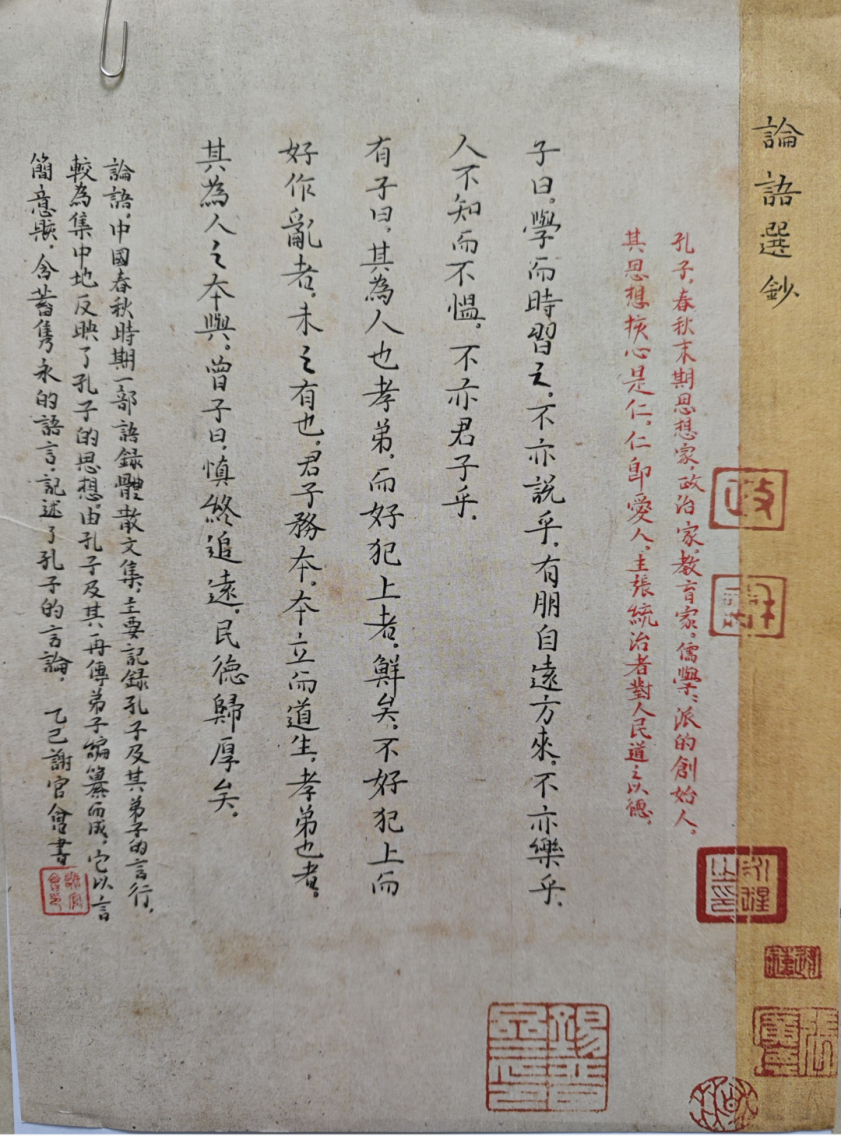 論語選鈔
孔子，春秋末期思想家，政治家，教育家，儒學學派的創始人，
其思想核心是仁，仁即愛人，主張統治者對人民道之以德，
子曰，學而時習之，不亦說乎，有朋自遠方來，不亦樂乎，
人不知而不慍，不亦君子乎，
有子曰，其為人也孝弟，而好犯上者，鮮矣，不好犯上而
好作亂者，未之有也，君子務本，本立而道生，孝弟也者，
其為人之本與，曾子曰，慎終追遠，民德歸厚矣，
論語，中國春秋時期一部語錄體散文集，主要記錄孔子及其弟子的言行，
較為集中地反映了孔子的思想，由孔子及其再傳弟子編纂而成，它以言
簡意賅，含蓄雋永的語言，記述了孔子的言論，
乙巳謝官會書